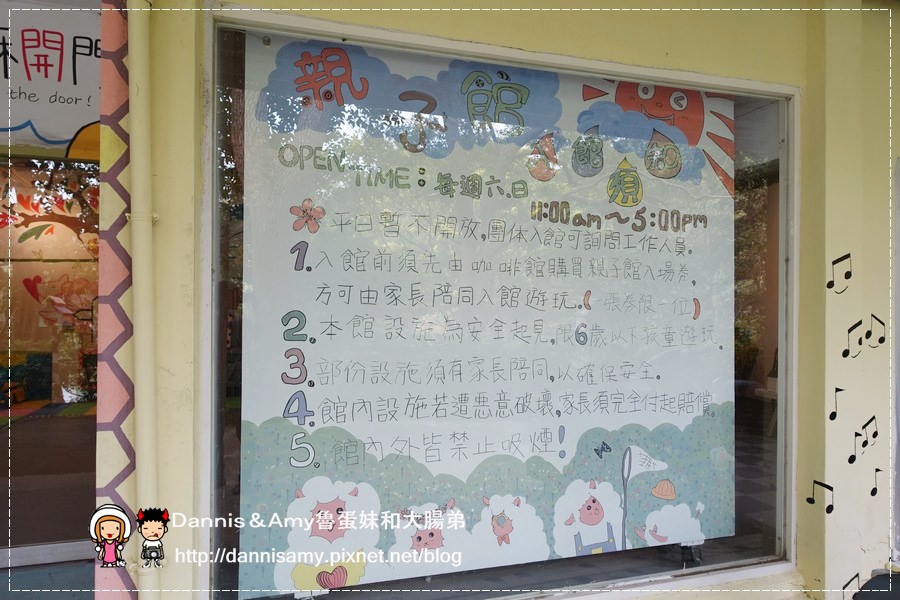 開門
the door!
親子館
入館須知
OPEN TIME：每週六.日
11:00am～5:00pm
平日暫不開放,團体入館可詢問工作人員。
1.入館前須先由咖啡館購買親子館入場券,
方可由家長陪同入館遊玩.(一張券限一位)
2.本館設施為安全起見,限6歲以下孩童遊玩.
3.部份設施須有家長陪同,以確保安全.
4.館內設施若遭惡意破壞,家長須完全付起賠償.
5.館內外皆禁止吸煙!
Dannis＆Amy魯蛋妹和大腸弟
http://dannisamy.pixnet.net/blog